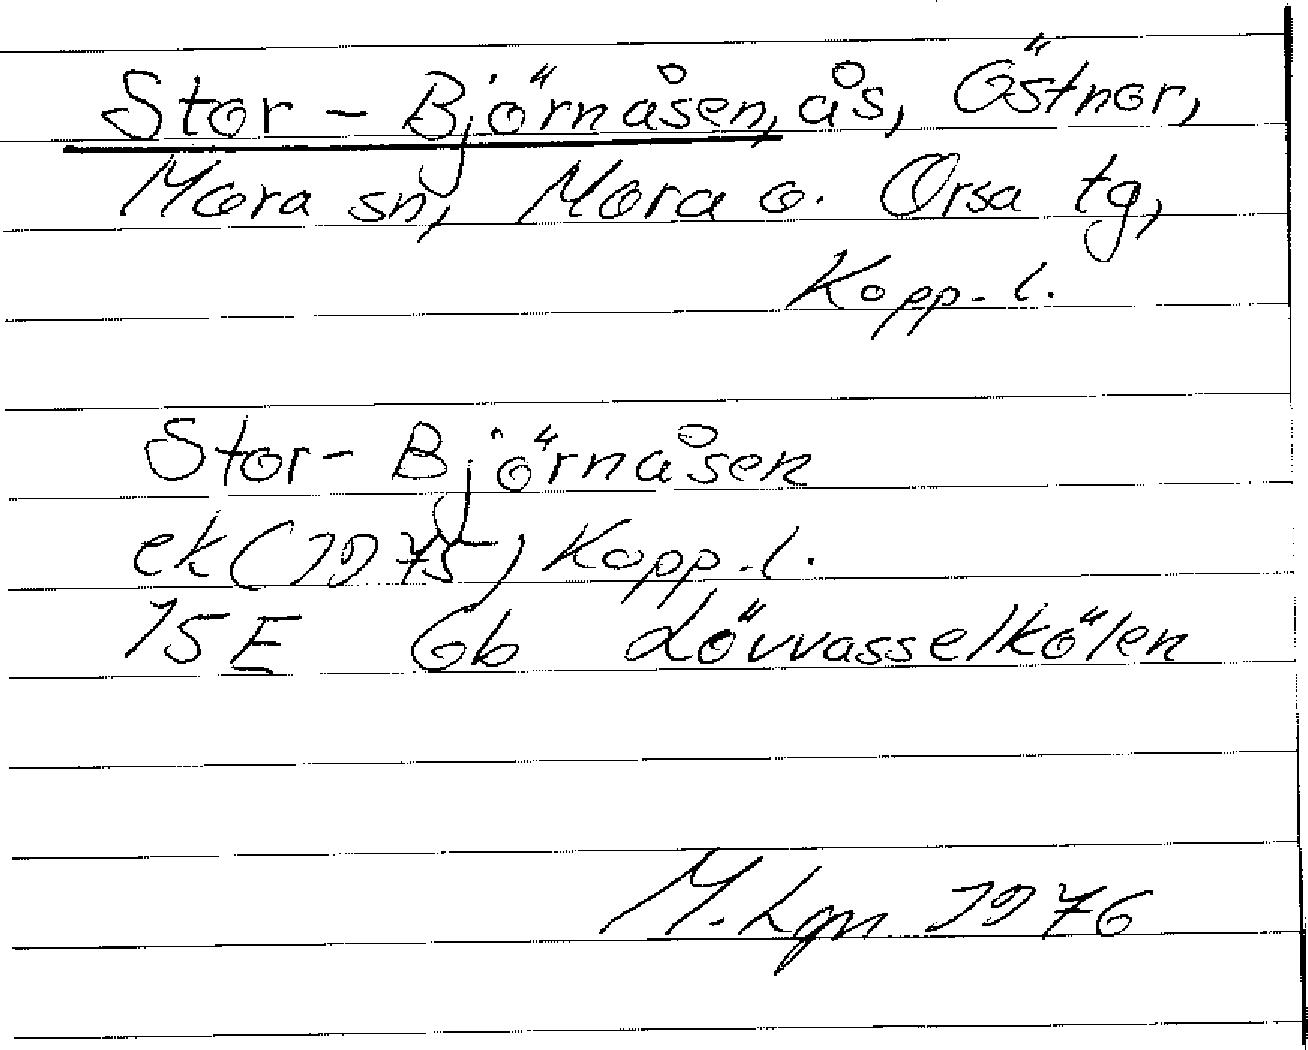 Stor - Björnåsen, ås, Östnor,
Mora sn, Mora o. Orsa tg,
Kopp. l.
Stor - Björnåsen
ek (1975) Kopp. l.
15E 6b Lövvasselkölen
M. Lgn 1976